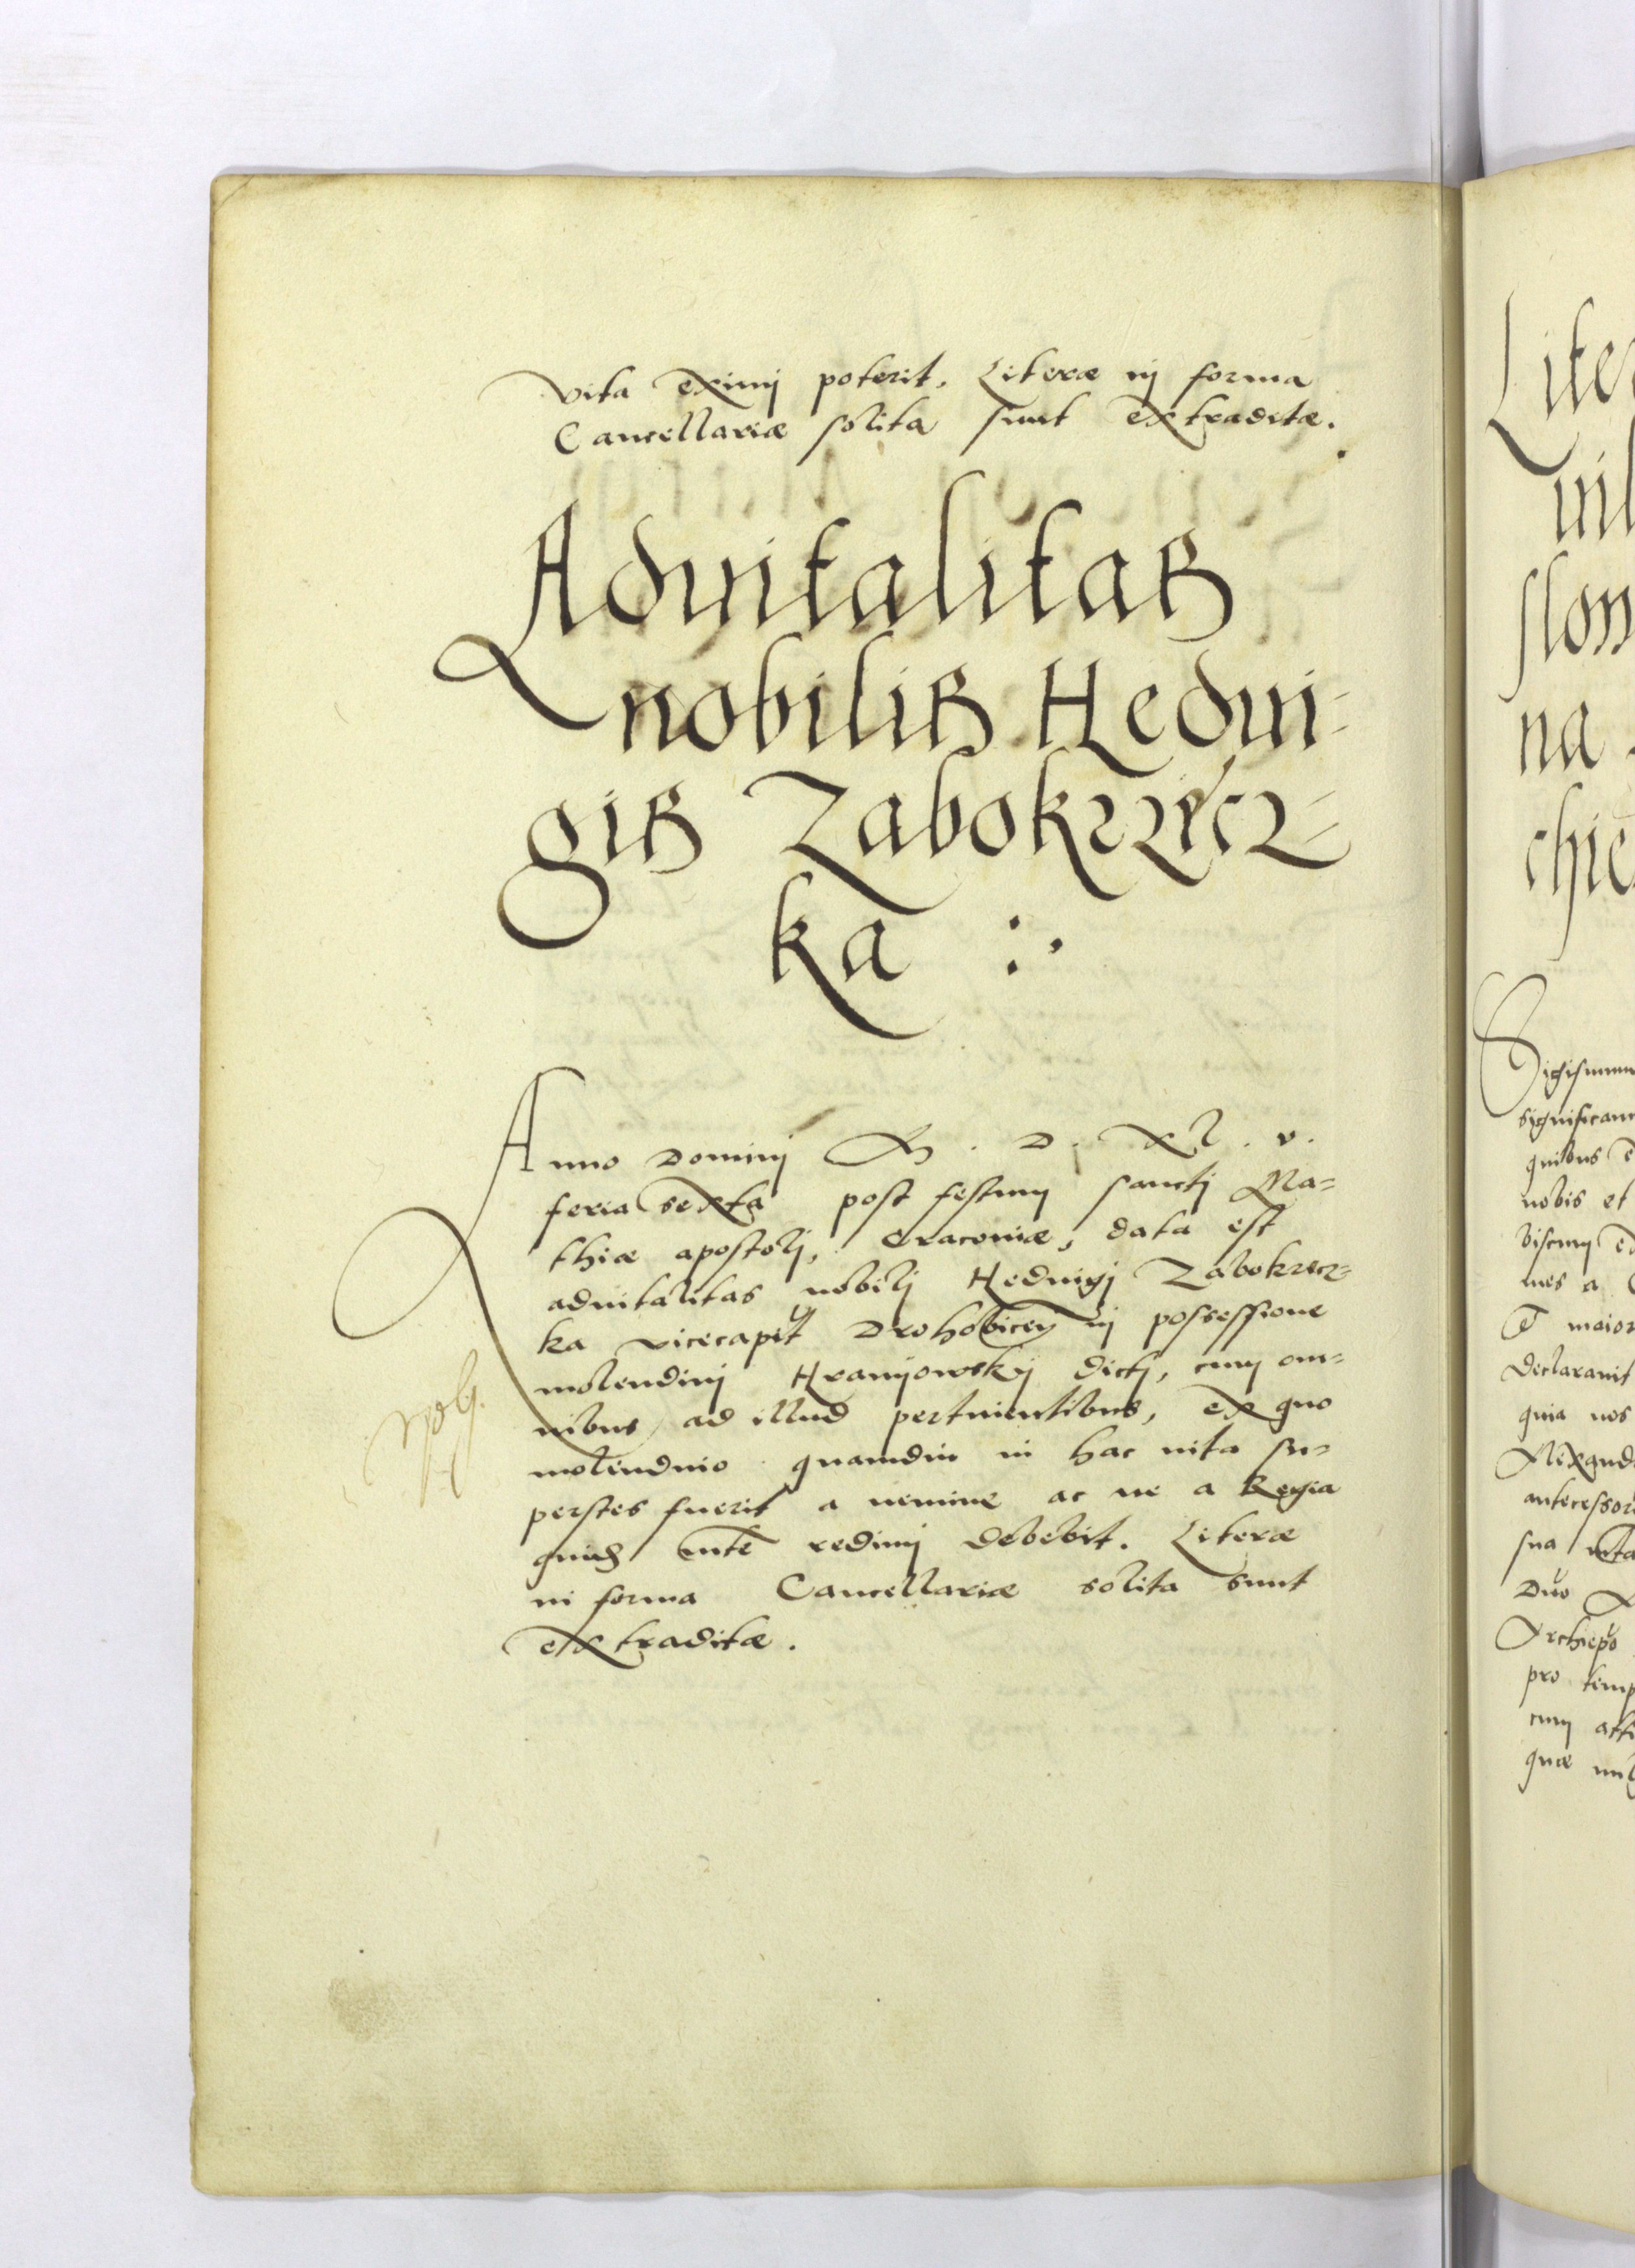 vita eximj poterit. Literæ in forma
Cancellariæ solita sunt extraditæ.
Aduitalitas
nobilis Hedui-
gis Zabokrzecz-
ka :.
Anno Dominj M. D. XL. v.
feria sexta post festum sanctj Ma=
thiæ apostolj, Cracoviæ, data est
aduitalitas nobilj Heduigj Zabokrzecz=
ka vicecapit Drohobicen in possessione
molendinj Hranyowskj dictj, cum om=
nibus ad illud pertinentibus, ex quo
molendino quamdiu in hac uita su=
perstes fuerit a nemine ac ne a Regia
quidem mte redimj debebit. Literæ
in forma Cancellariæ solita sunt
extraditæ.
Lite
uil
slon
na
chie
Sigismun
significam
quibus
nobis et
mes a
maior
declarauit
quia nos
Alexand
antecessor
sua
Duo
Archiepo
pro temp
cum
quæ